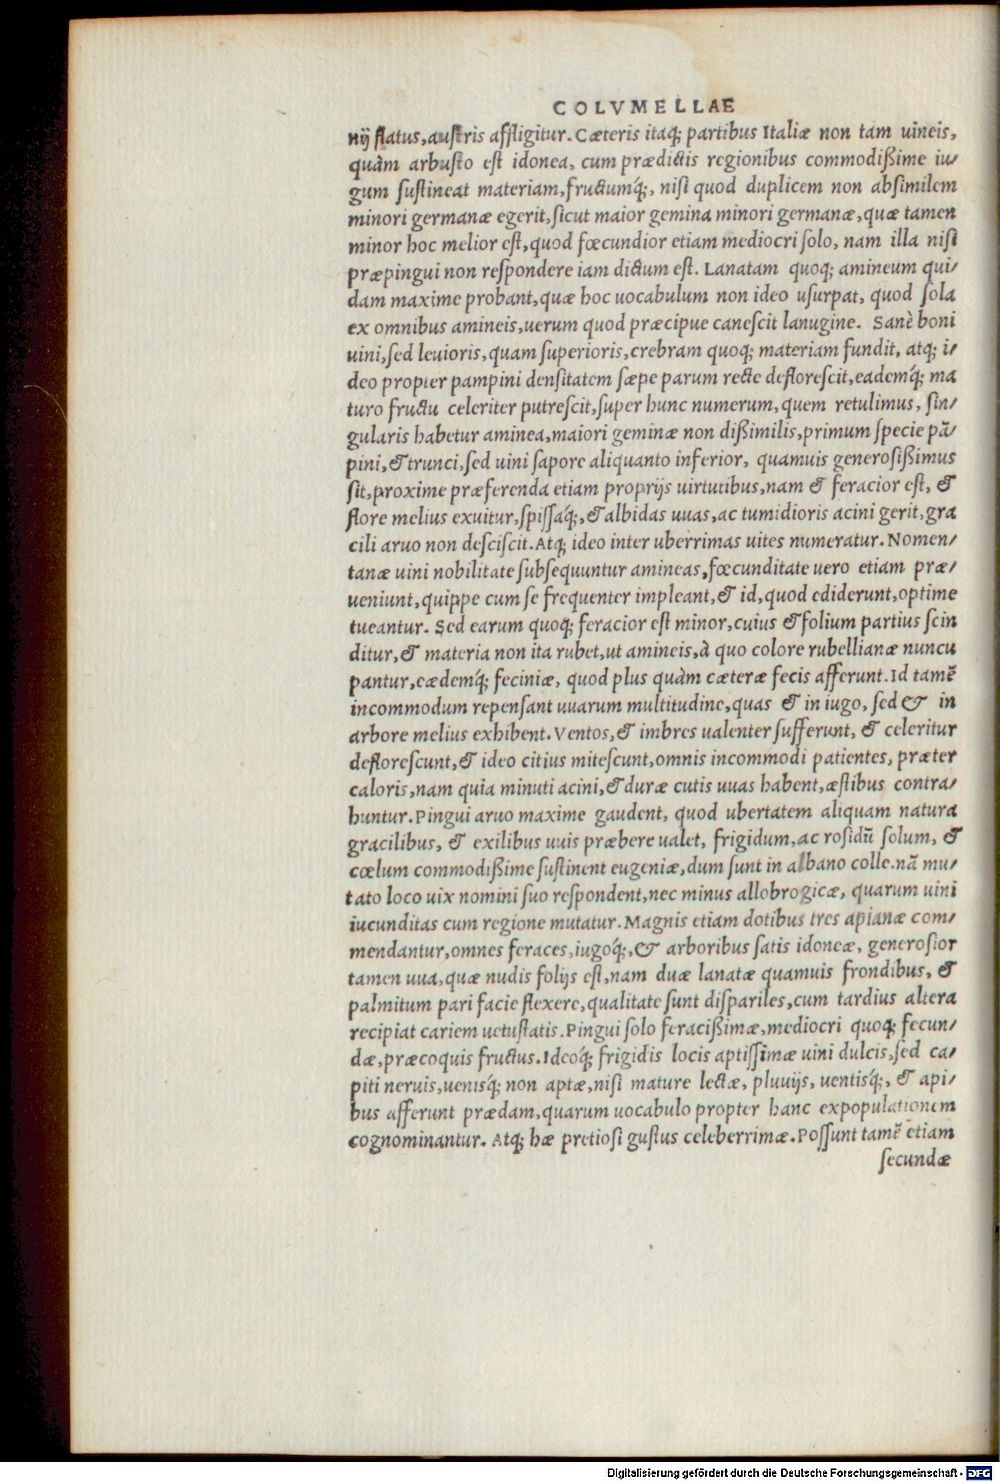 COLVMELLAE
nij flatus, austris affligitur. Cæteris itaq; partibus Italiæ non tam uineis,
quàm arbusto est idonea, cum prædictis regionibus commodißime iu/
gum sustineat materiam, fructumq́;, nisi quod duplicem non absimilem
minori germanæ egerit, sicut maior gemina minori germanæ, quæ tamen
minor hoc melior est, quod fœcundior etiam mediocri solo, nam illa nisi
præpingui non respondere iam dictum est. Lanatam quoq; amineum qui/
dam maxime probant, quæ hoc uocabulum non ideo usurpat, quod sola
ex omnibus amineis, uerum quod præcipue canescit lanugine. Sanè boni
uini, sed leuioris, quam superioris, crebram quoq; materiam fundit, atq; i/
deo propter pampini densitatem sæpe parum recte deflorescit, eademq́; ma
turo fructu celeriter putrescit, super hunc numerum, quem retulimus, sin/
gularis habetur aminea, maiori geminæ non dißimilis, primum specie pã/
pini, & trunci, sed uini sapore aliquanto inferior, quamuis generosißimus
sit, proxime præferenda etiam proprijs uirtutibus, nam & feracior est, &
flore melius exuitur, spissaq́;, & albidas uuas, ac tumidioris acini gerit, gra
cili aruo non desciscit. Atq; ideo inter uberrimas uites numeratur. Nomen/
tanæ uini nobilitate subsequuntur amineas, fœcunditate uero etiam præ/
ueniunt, quippe cum se frequenter impleant, & id, quod ediderunt, optime
tueantur. Sed earum quoq; feracior est minor, cuius & folium partius scin
ditur, & materia non ita rubet, ut amineis, à quo colore rubellianæ nuncu
pantur, eædemq́; feciniæ, quod plus quàm cæteræ fecis afferunt. Id tamẽ
incommodum repensant uuarum multitudine, quas & in iugo, sed & in
arbore melius exhibent. Ventos, & imbres ualenter sufferunt, & celeritur
deflorescunt, & ideo citius mitescunt, omnis incommodi patientes, præter
caloris, nam quia minuti acini, & duræ cutis uuas habent, æstibus contra/
huntur. Pingui aruo maxime gaudent, quod ubertatem aliquam natura
gracilibus, & exilibus uuis præbere ualet, frigidum, ac rosidũ solum, &
cœlum commodißime sustinent eugeniæ, dum sunt in albano colle. nã mu/
tato loco uix nomini suo respondent, nec minus allobrogicæ, quarum uini
iucunditas cum regione mutatur. Magnis etiam dotibus tres apianæ com/
mendantur, omnes feraces, iugoq́;, & arboribus satis idoneæ, generosior
tamen uua, quæ nudis folijs est, nam duæ lanatæ quamuis frondibus, &
palmitum pari facie flexere, qualitate sunt dispariles, cum tardius altera
recipiat cariem uetustatis. Pingui solo feracißimæ, mediocri quoq; fecun/
dæ, præcoquis fructus. Ideoq́; frigidis locis aptissimæ uini dulcis, sed ca/
piti neruis, uenisq́; non aptæ, nisi mature lectæ, pluuijs, uentisq́;, & api/
bus afferunt prædam, quarum uocabulo propter hanc expopulationem
cognominantur. Atq; hæ pretiosi gustus celeberrimæ. Possunt tamẽ etiam
secundæ
Digitalisierung gefördert durch die Deutsche Forschungsgemeinschaft - DFG